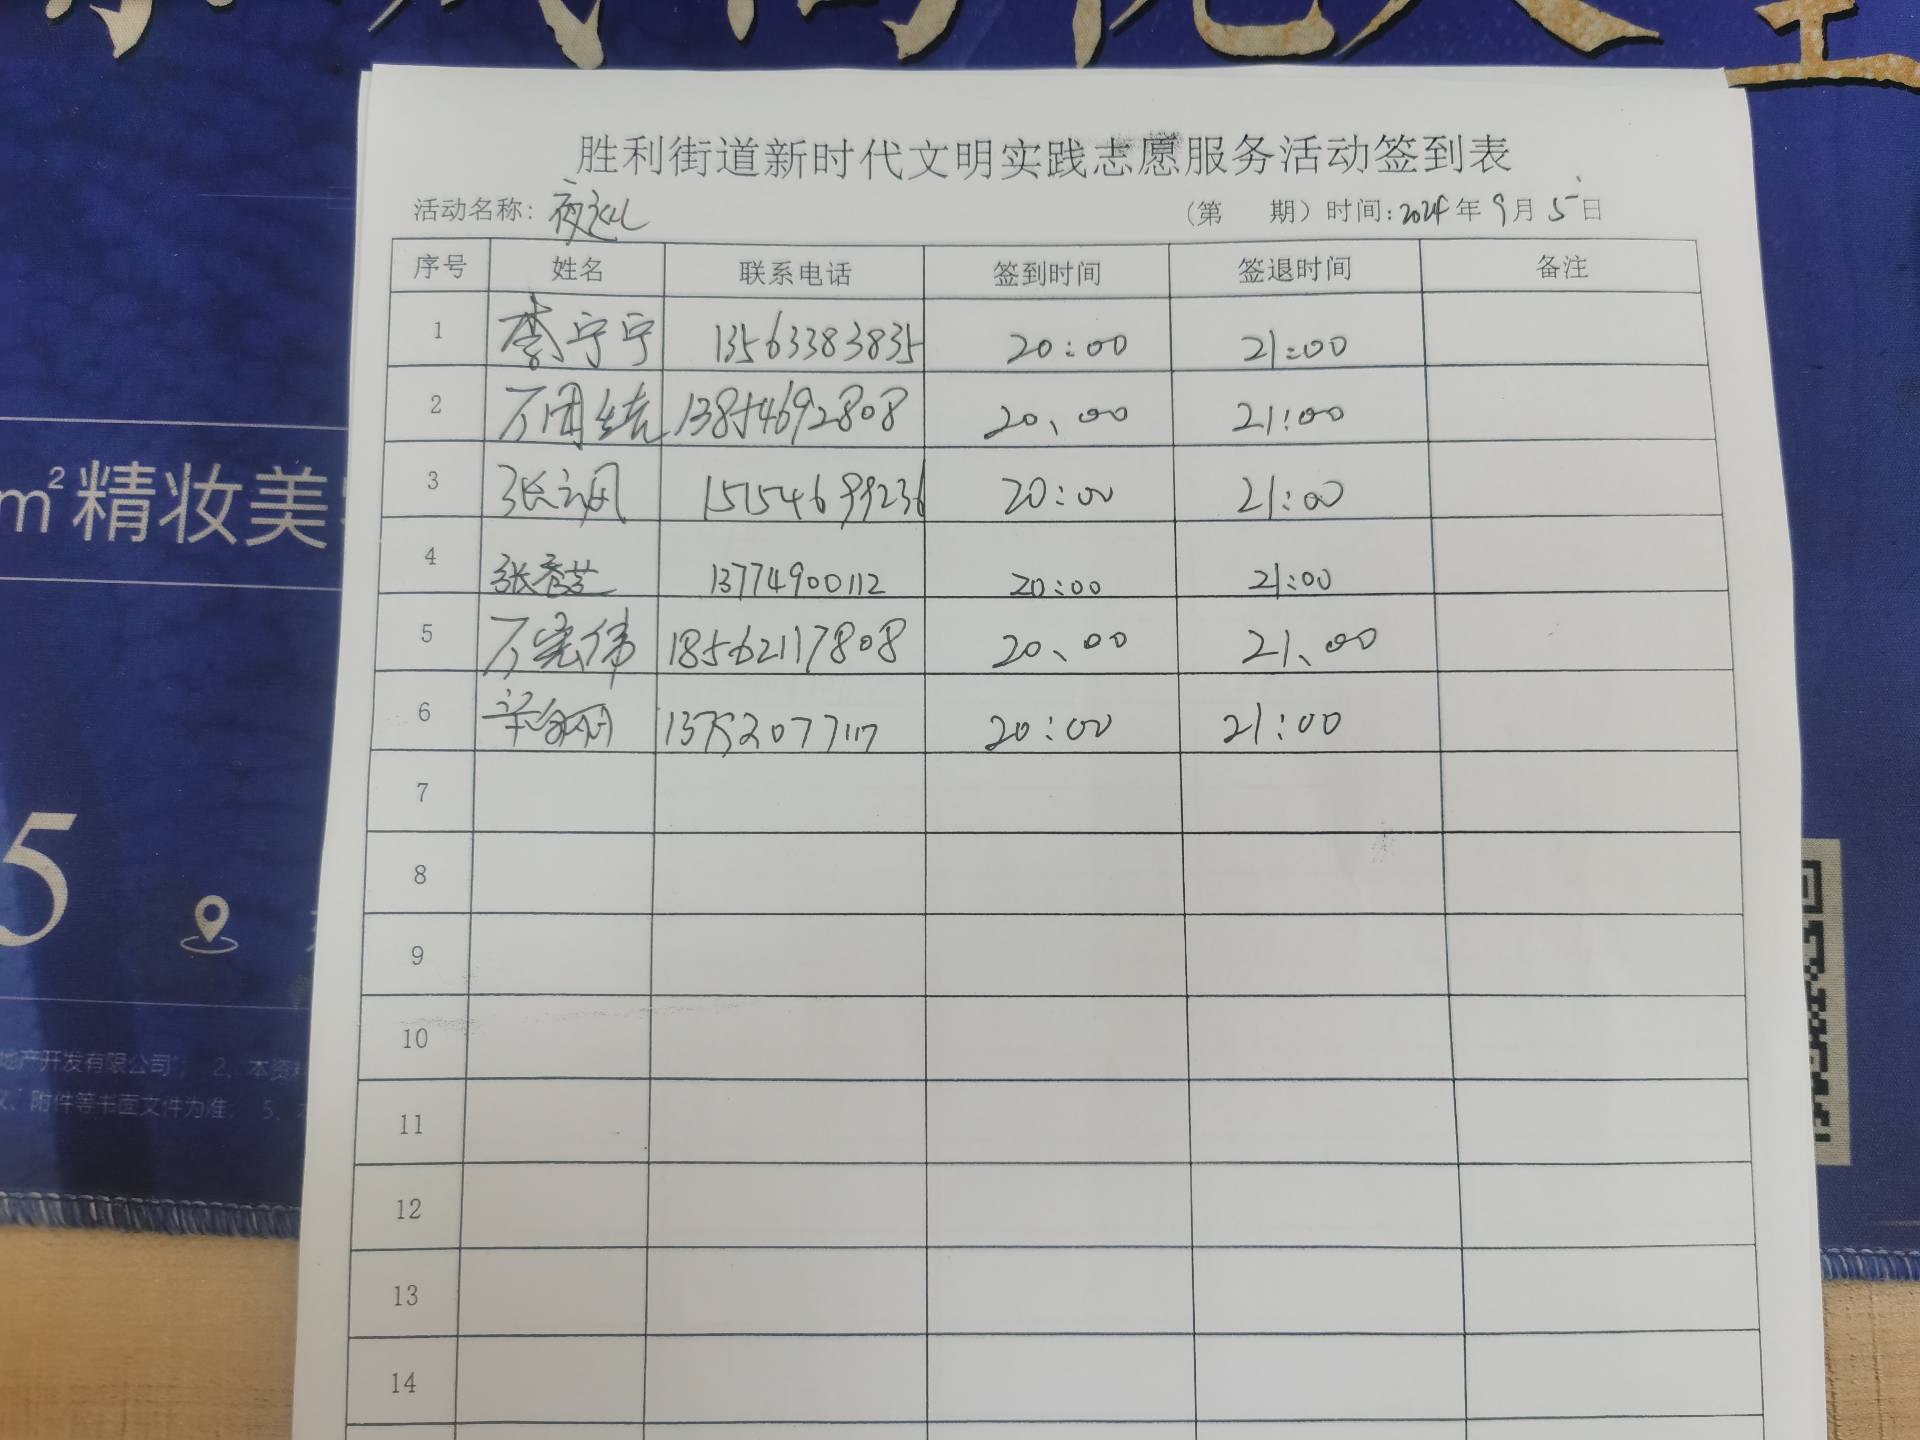 m²精妆美
5
地产开发有限公司"； 2、本资料
附件等书面文件为准； 5、
胜利街道新时代文明实践志愿服务活动签到表
活动名称：夜巡 （第 期）时间：2024年9月5日
序号 姓名 联系电话 签到时间 签退时间 备注
1 李宁宁 13563383835 20:00 21:00
2 13854692808 20、00 21:00
3 15154699236 20:00 21:00
4 张香芝 13774900112 20:00 21:00
5 万宪伟 18562117808 20、00 21、00
6 20:00 21:00
7
8
9
10
11
12
13
14